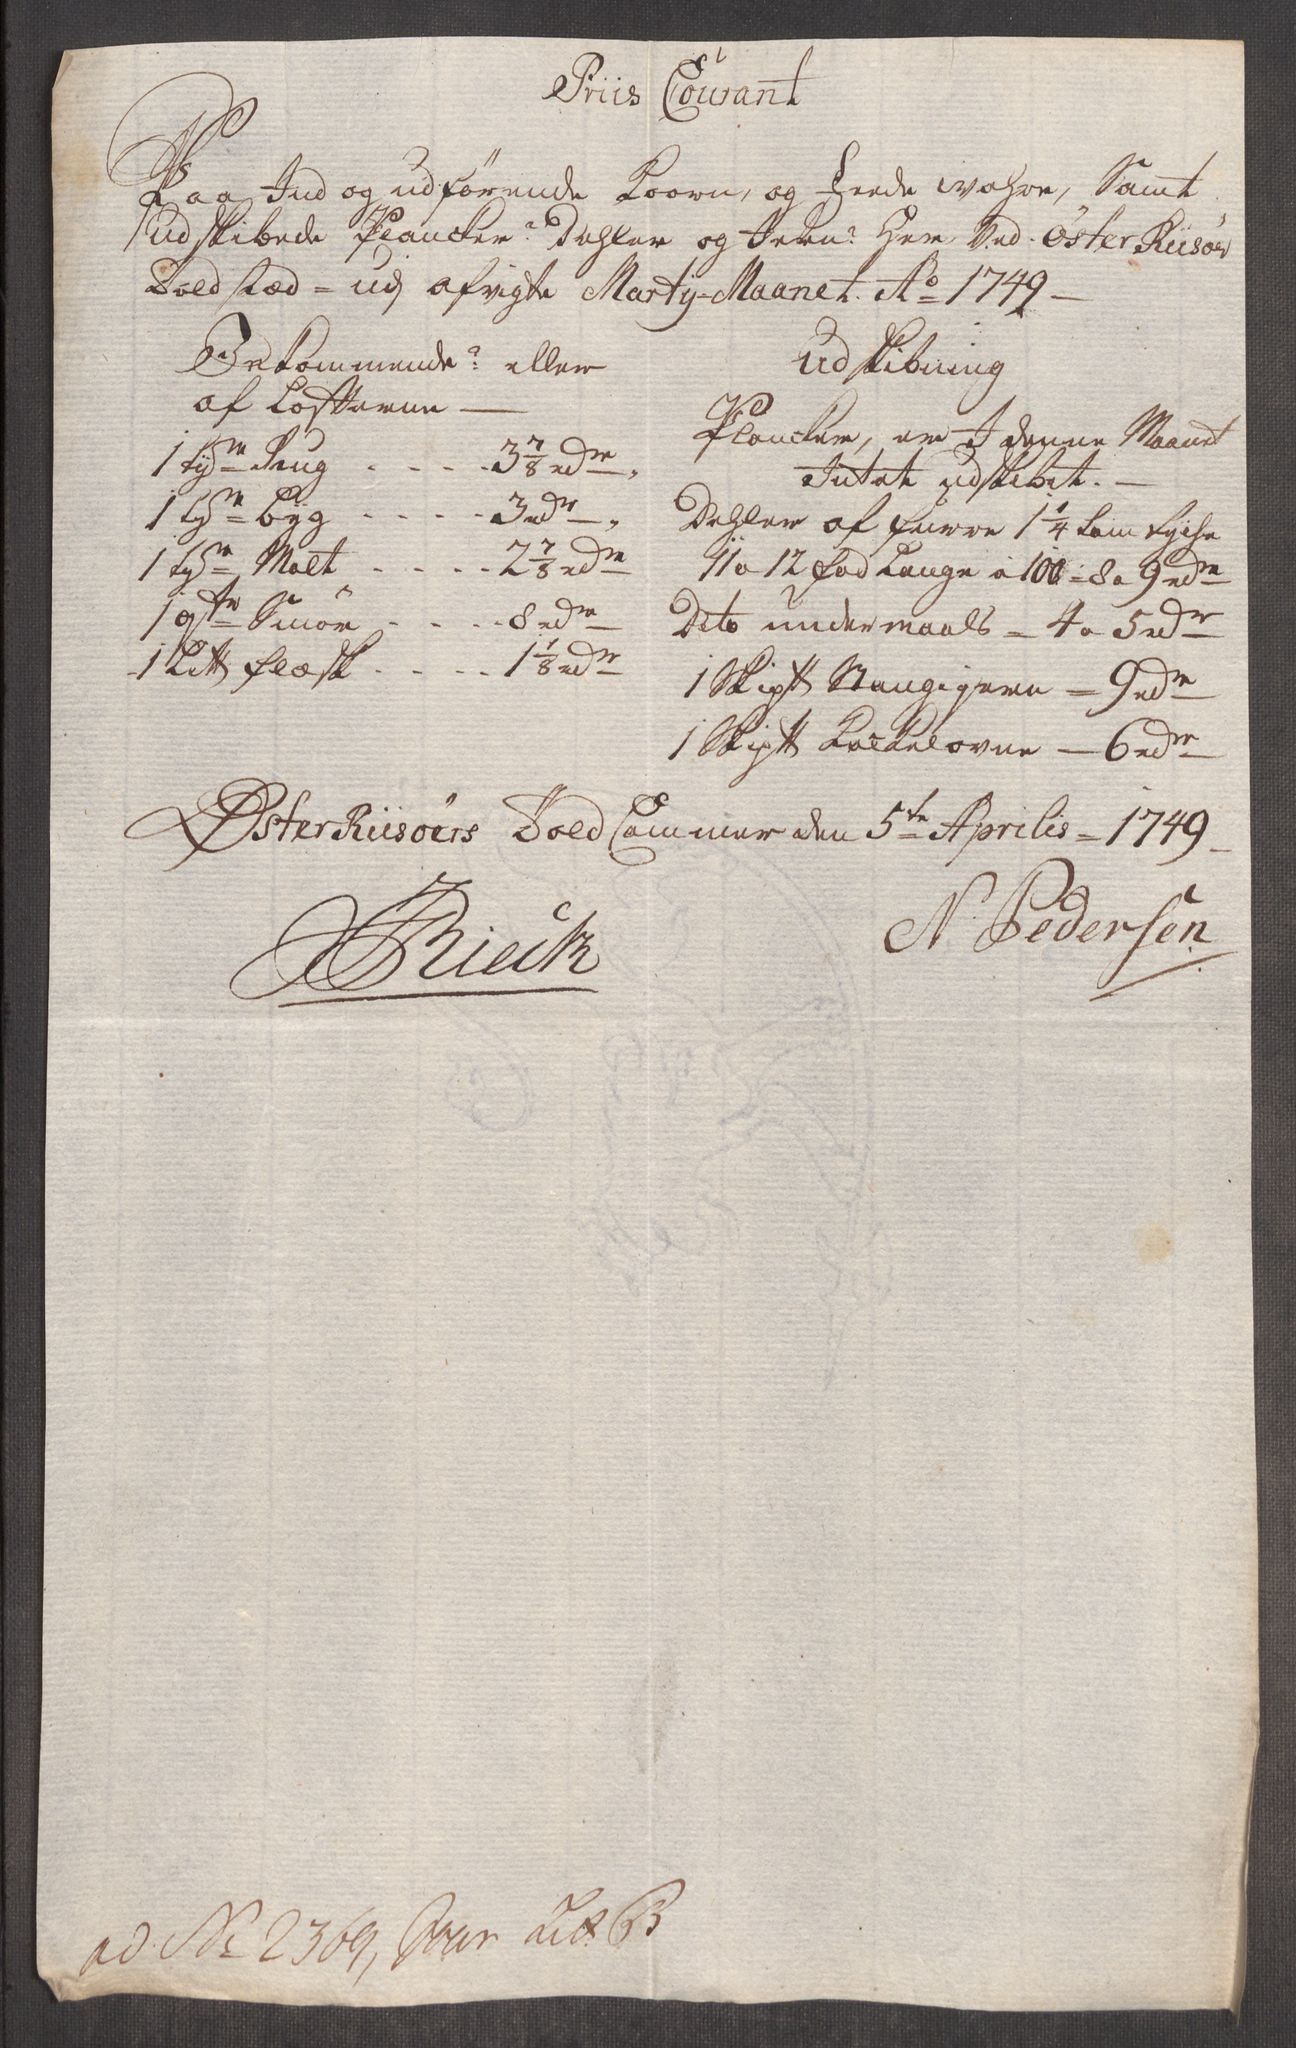 Priis Courant
Paa Ind og udførende Koorn, og feede wahre, Samt
Udskibede Plancker, Dehler og Jern, Her Ved Öster Riisöer
Toldstæd = udj afvigte Marty-Maanet. Ao 1749 —
Indkommende, eller
af Losserne —
1 tdr Rug . . . . 3 7/8 rdr.
1 tdr byg . . . . 3 rdr.
1 tdr Malt . . . . 2 7/8 rdr
1 qtr Smör . . . . 8 rdr
1 Litt flæsk . . . . 1 1/8 rdr
Udskibning
Plancker, er I denne Maanet
Intet udskibet. —
Dehler af furre 1 1/4 tom tycke
11 a 12 fod Lange a 100 = 8 a 9 rdr
Dito undermaals = 4 a 5 rdr
1 Skiptt Stangjern — 9 rdr
1 Skiptt Kackelovne — 6 rdr
ÖsterRiisöers Told Cammer den 5te Aprilis = 1749
Rieck
N Pedersen
ad No 2369, Litr B